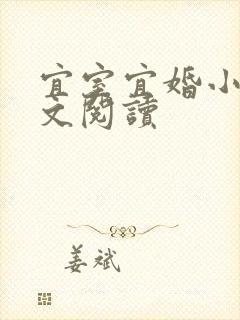 宜室宜婚小
文閱讀
姜斌